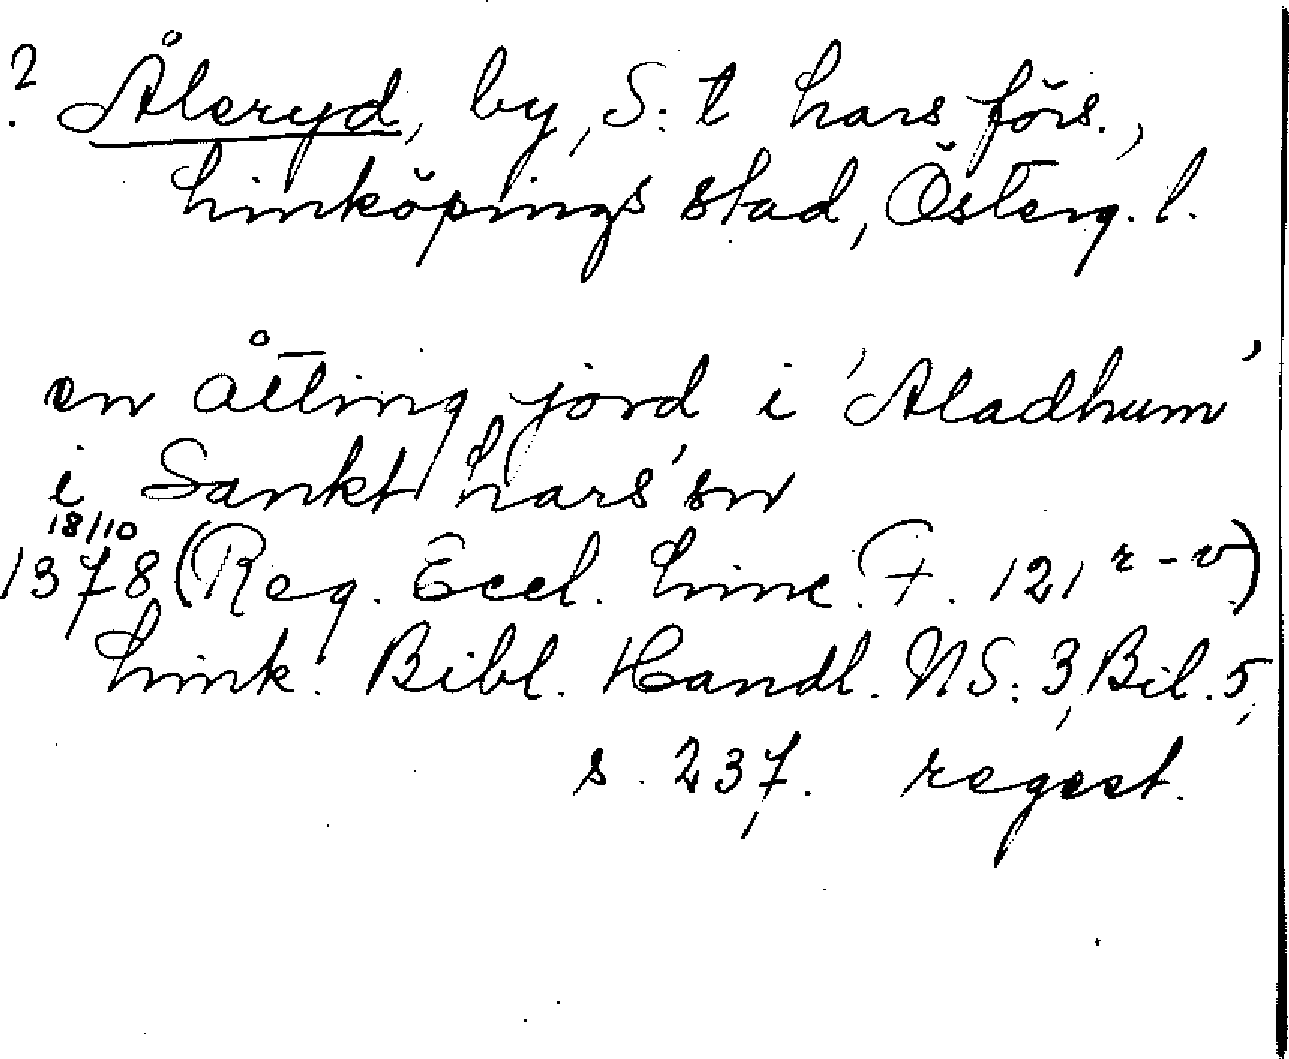 ? Åleryd, by, S:t Lars förs.,
Linköpings stad, Österg. l.
en åtting jord i 'Aladhum'
i Sankt Lars' sn
18/10
1378 (Reg. Eccl. Linc. F. 121 r-v)
Link. Bibl. Handl. NS: 3, Bil. 5,
s. 237. regest.